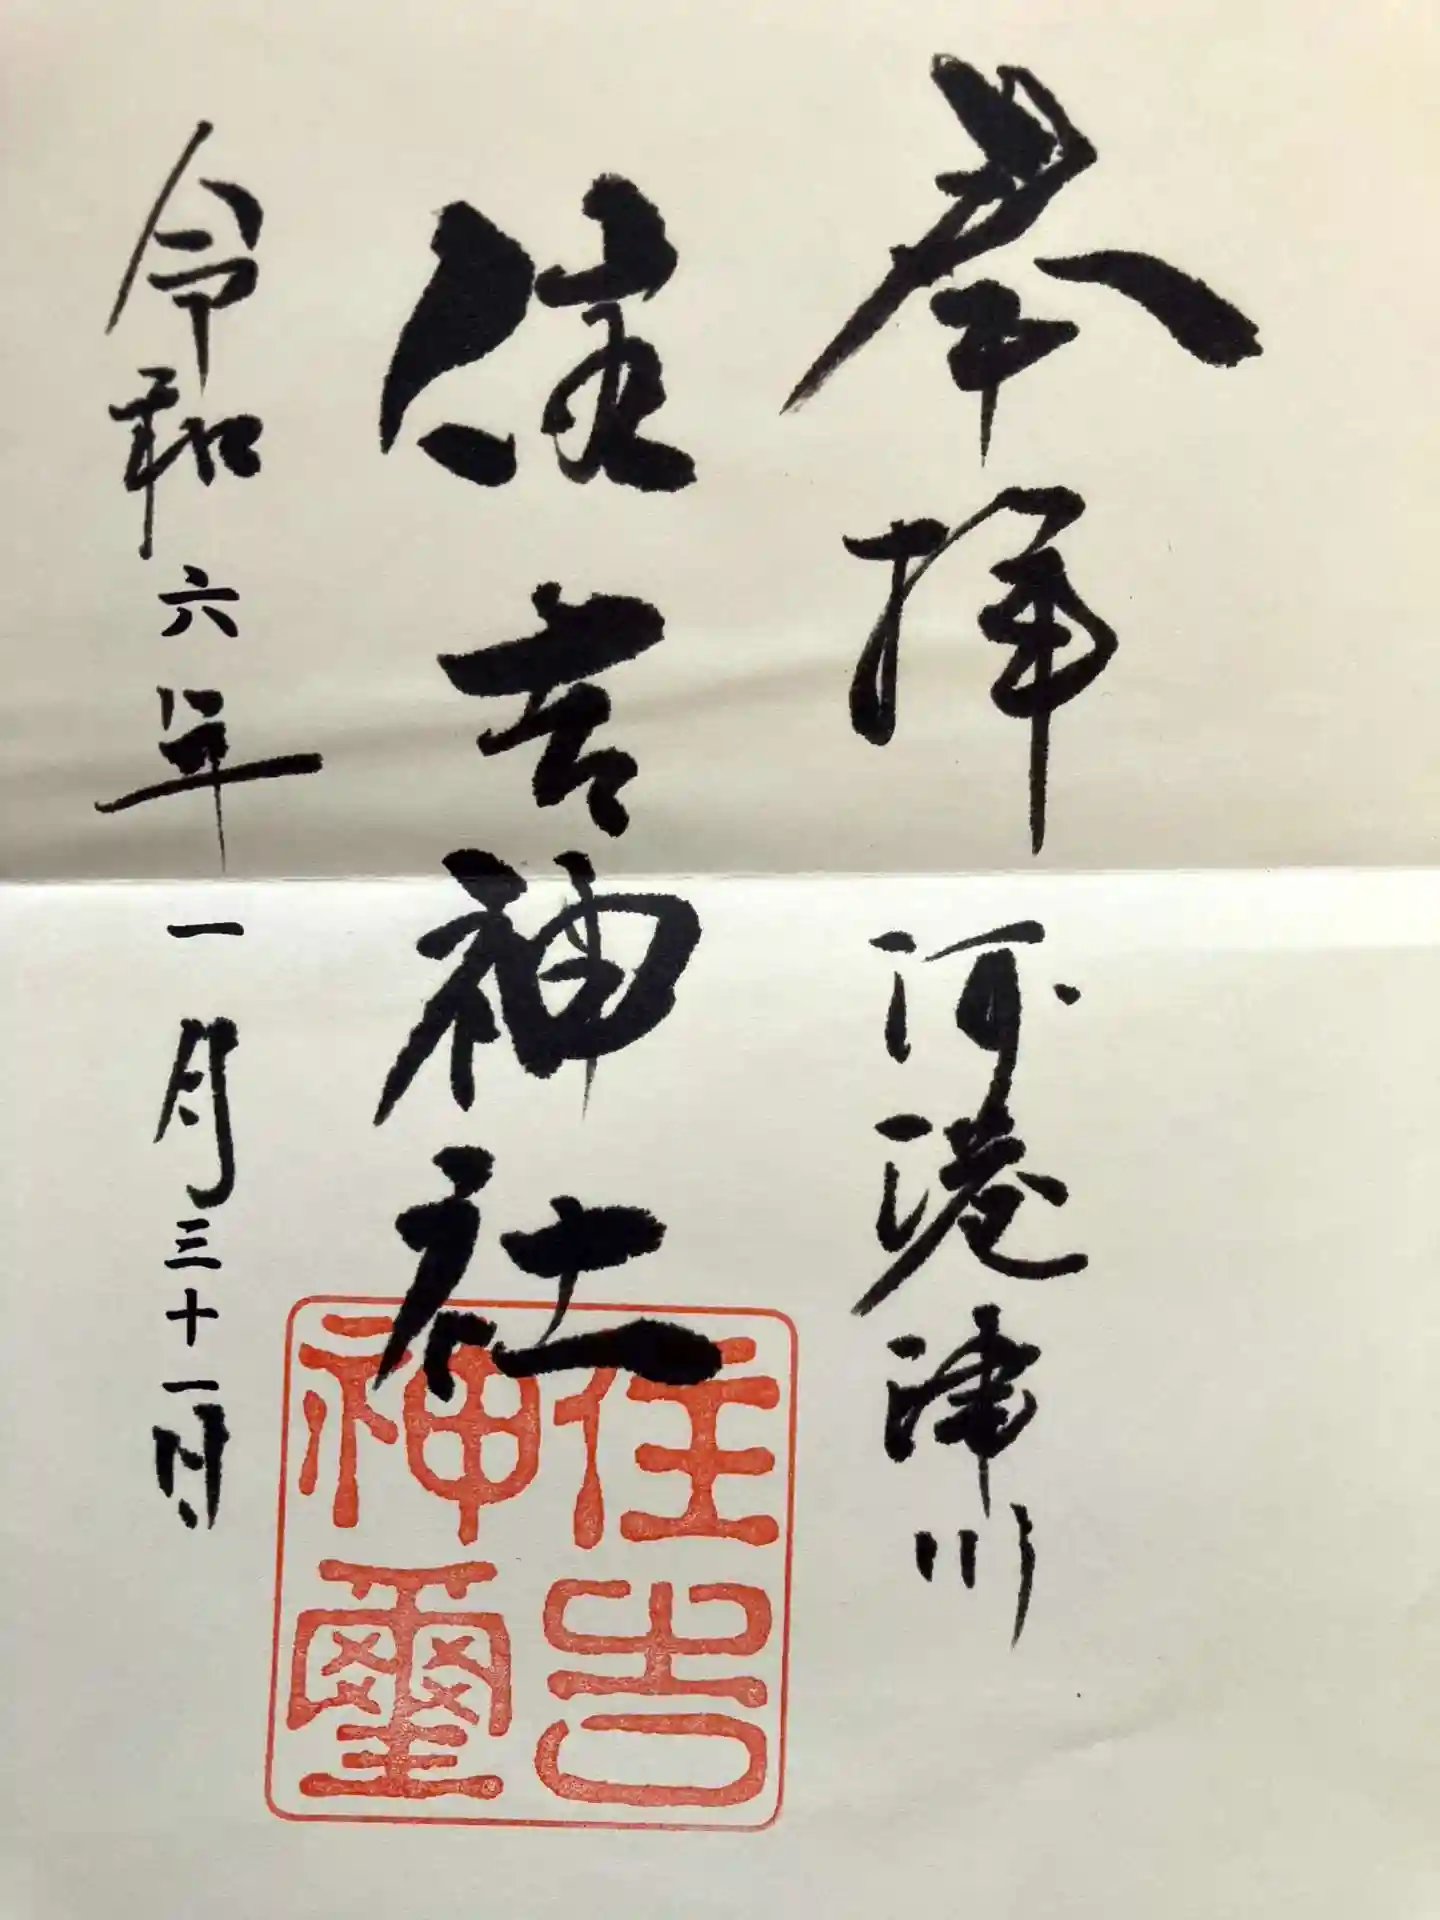 奉拝 河港津川
住吉神社
令和六年一月三十一日
住吉
神璽